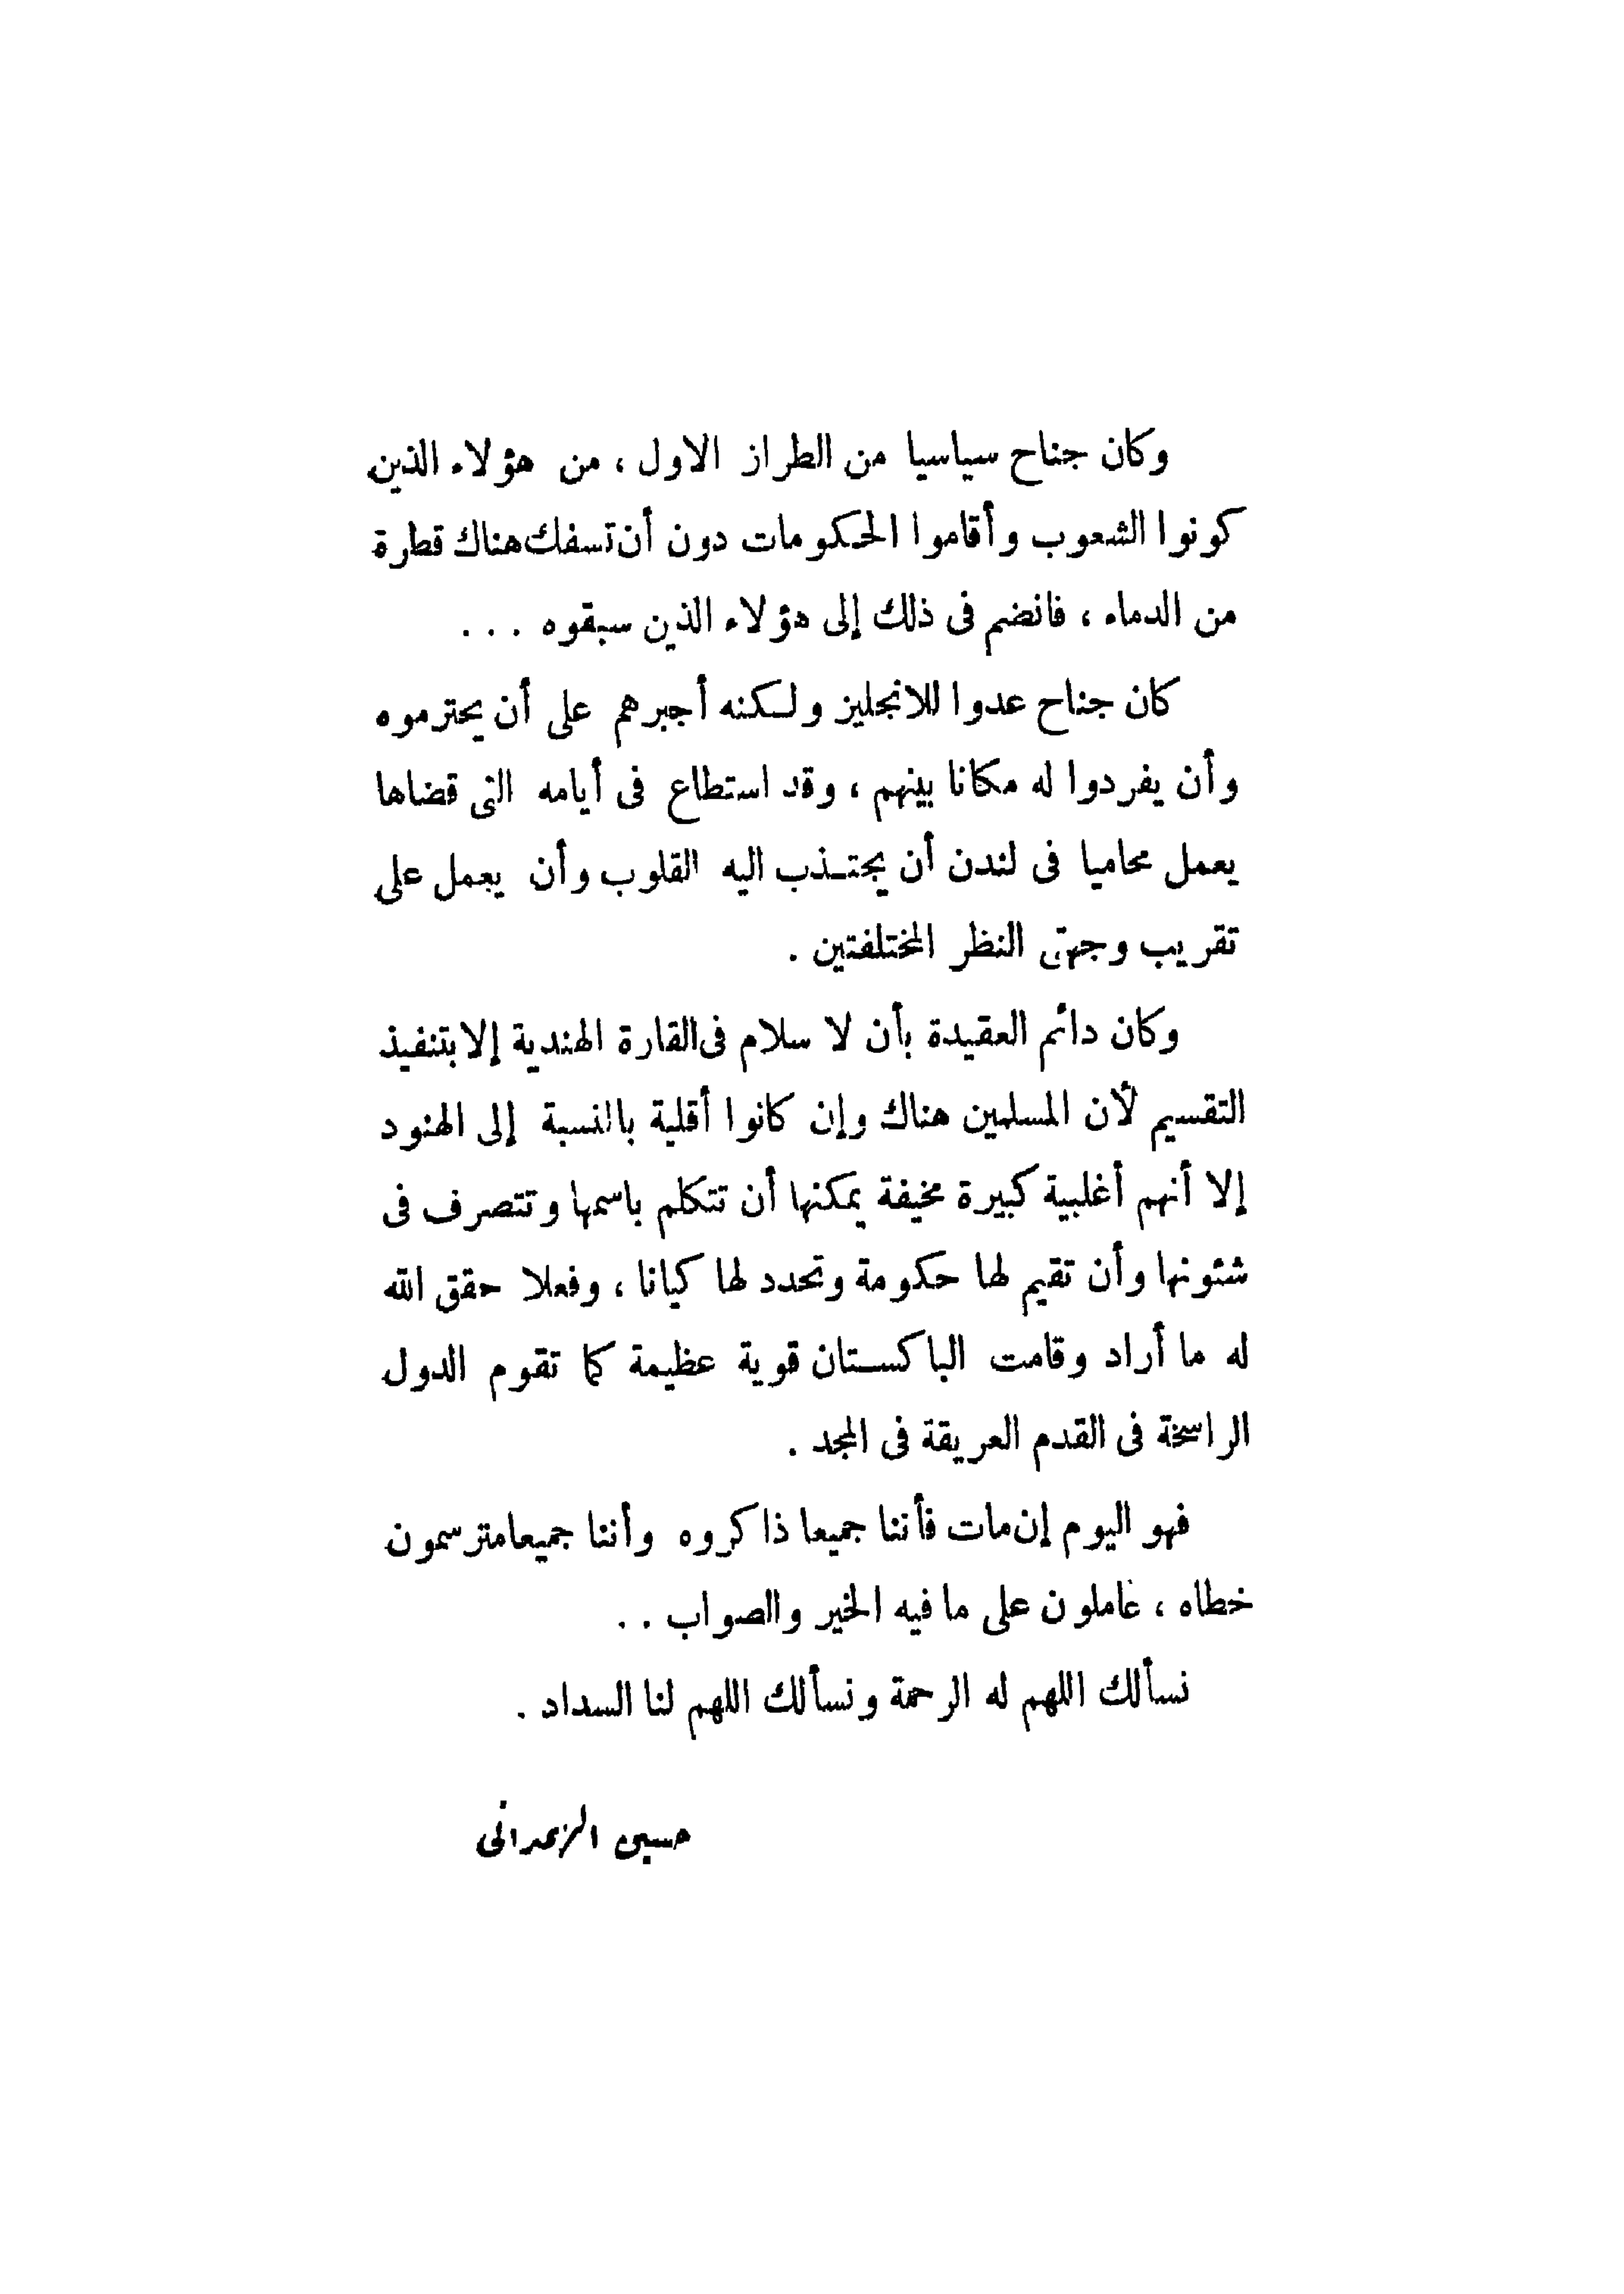 وكان جناح سياسيا من الطراز الاول ، من هؤلاء الذين
كونوا الشعوب وأقاموا الحكومات دون أن تسفك هناك قطرة
من الدماء ، فانضم فى ذلك إلى هؤلاء الذين سبقوه . . .
كان جناح عدوا للانجليز ولكنه أجبرهم على أن يحترموه
وأن يفردوا له مكانا بينهم ، وقد استطاع فى أيامه التى قضاها
يعمل محاميا فى لندن أن يجتذب اليه القلوب وأن يعمل على
تقريب وجهتى النظر المختلفتين .
وكان دائم العقيدة بأن لا سلام فى القارة الهندية إلا بتنفيذ
التقسيم لأن المسلمين هناك وإن كانوا أقلية بالنسبة إلى الهنود
إلا أنهم أغلبية كبيرة مخيفة يمكنها أن تتكلم باسمها وتتصرف فى
شئونها وأن تقيم لها حكومة وتحدد لها كيانا ، وفعلا حقق الله
له ما أراد وقامت الباكستان قوية عظيمة كما تقوم الدول
الراسخة فى القدم العريقة فى المجد .
فهو اليوم إن مات فأننا جميعا ذاكروه وأننا جميعا مترسمون
خطاه ، عاملون على ما فيه الخير والصواب . .
نسألك اللهم له الرحمة ونسألك اللهم لنا السداد .
حسين